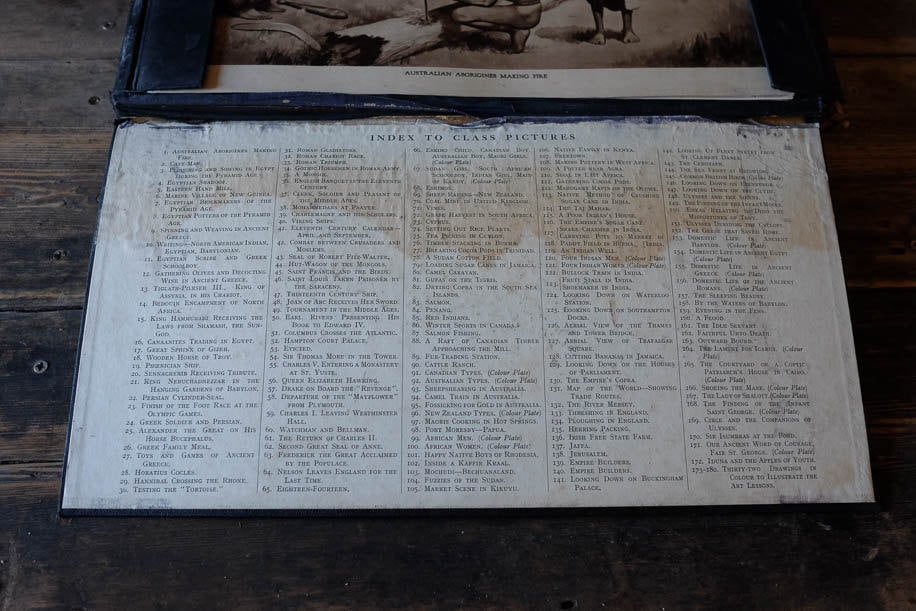 AUSTRALIAN ABORIGINES MAKING FIRE
INDEX TO CLASS PICTURES
1. Australian Aborigines Making
Fire.
2. Cave Man.
3. Ploughing and Sowing in Egypt
during the Pyramid Age.
4. Egyptian Seaboat.
5. Eastern Hand Mill.
6. Marine Village of New Guinea.
7. Egyptian Brickmakers of the
Pyramid Age.
8. Egyptian Potters of the Pyramid
Age.
9. Spinning and Weaving in Ancient
Greece.
10. Writing—North American Indian,
Egyptian, Babylonian.
11. Egyptian Scribe and Greek
Schoolboy.
12. Gathering Olives and Decocting
Wine in Ancient Greece.
13. Tiglath-Pileser III., King of
Assyria, in his Chariot.
14. Bedouin Encampment of North
Africa.
15. King Hammurabi Receiving the
Laws from Shamash, the Sun-
God.
16. Canaanites Trading in Egypt.
17. Great Sphinx of Gizeh.
18. Wooden Horse of Troy.
19. Phœnician Ship.
20. Sennacherib Receiving Tribute.
21. King Nebuchadnezzar in the
Hanging Gardens of Babylon.
22. Persian Cylinder-Seal.
23. Finish of the Foot Race at the
Olympic Games.
24. Greek Soldier and Persian.
25. Alexander the Great on His
Horse Bucephalus.
26. Greek Family Meal.
27. Toys and Games of Ancient
Greece.
28. Horatius Cocles.
29. Hannibal Crossing the Rhone.
30. Testing the "Tortoise."
31. Roman Gladiators.
32. Roman Chariot Race.
33. Roman Triumph.
34. Gothic Horsemen in Roman Army.
35. A Mongol.
36. English Banquet in the Eleventh
Century.
37. Clerk, Soldier and Peasant of
the Middle Ages.
38. Mohammedans at Prayer.
39. Charlemagne and his Scholars.
40. Viking Ships.
41. Eleventh Century Calendar—
April and September.
42. Combat between Crusaders and
Moslems.
43. Seal of Robert Fitz-Walter.
44. Hut-Wagon of the Mongols.
45. Saint Francis and the Birds.
46. Saint Louis Taken Prisoner by
the Saracens.
47. Thirteenth Century Ship.
48. Joan of Arc Receives Her Sword.
49. Tournament in the Middle Ages.
50. Earl Rivers Presenting His
Book to Edward IV.
51. Columbus Crosses the Atlantic.
52. Hampton Court Palace.
53. Evicted.
54. Sir Thomas More in the Tower.
55. Charles V. Entering a Monastery
at St. Yuste.
56. Queen Elizabeth Hawking.
57. Drake on Board the "Revenge".
58. Departure of the "Mayflower"
from Plymouth.
59. Charles I. Leaving Westminster
Hall.
60. Watchman and Bellman.
61. The Return of Charles II.
62. Second Great Seal of Anne.
63. Frederick the Great Acclaimed
by the Populace.
64. Nelson Leaves England for the
Last Time.
65. Eighteen-Fourteen.
66. Eskimo Child, Canadian Boy,
Australian Boy, Maori Girls.
(Colour Plate)
67. Sudan Girl, South African
Schoolboy, Indian Girl, Maid
of Kandy. (Colour Plate)
68. Eskimos.
69. Sheep Mairing—New Zealand.
70. Coal Mine in United Kingdom.
71. Yokel.
72. Grape Harvest in South Africa.
73. Cyprus.
74. Setting Out Rice Plants.
75. Tea Picking in Ceylon.
76. Timber-Stacking in Burma.
77. Breaking Cocoa Pods in Trinidad.
78. A Sudan Cotton Field.
79. Loading Sugar Canes in Jamaica.
80. Camel Caravan.
81. Gufas on the Tigris.
82. Drying Copra in the South Sea
Islands.
83. Salmon.
84. Penang.
85. Red Indians.
86. Winter Sports in Canada.
87. Salmon Fishing.
88. A Raft of Canadian Timber
Approaching the Mill.
89. Fur-Trading Station.
90. Cattle Ranch.
91. Canadian Types. (Colour Plate)
92. Australian Types. (Colour Plate)
93. Sheepshearing in Australia.
94. Camel Train in Australia.
95. Fossicking for Gold in Australia.
96. New Zealand Types. (Colour Plate)
97. Maoris Cooking in Hot Springs.
98. Port Moresby—Papua.
99. African Men. (Colour Plate)
100. African Women. (Colour Plate)
101. Happy Native Boys of Rhodesia.
102. Inside a Kaffir Kraal.
103. Mochudi—Bechuanaland.
104. Fuzzies of the Sudan.
105. Market Scene in Kikuyu.
106. Native Family in Kenya.
107. Freetown.
108. Making Pottery in West Africa.
109. A Potter near Agra.
110. Stall in East Africa.
111. Sewing Camel Thorn.
112. Mahogany Mafts on the Oluwe.
113. Native Method of Crushing
Sugar Cane in India.
114. The Taj Mahal.
115. A Poor Indian's House.
116. The Empire's Sugar Cane.
Snake Charmer in India.
117. Carrying Pots to Market in
India.
118. Paddy Field in Burma.
119. An Indian Well.
120. Four Indian Men. (Colour Plate)
121. Four Indian Women. (Colour Plate)
122. Bullock Train in India.
123. Fruit Stall in India.
Shoemaker in India.
124. Looking Down on Waterloo
Station.
125. Looking Down on Southampton
Docks.
126. Aerial View of the Thames
and Tower Bridge.
127. Aerial View of Trafalgar
Square.
128. Cutting Bananas in Jamaica.
129. Looking Down on the Houses
of Parliament.
130. The Empire's Copra.
131. Map of the World—Showing
Trade Routes.
132. The River Mersey.
133. Threshing in England.
134. Ploughing in England.
135. Herring Packing.
136. Irish Free State Farm.
137. Jaffa.
138. Jerusalem.
139. Empire Builders.
140. Empire Builders.
141. Looking Down on Buckingham
Palace.
142. Looking Up Fleet Street from
St. Clement Danes.
143. The Cenotaph.
144. The Sea Front at Brighton.
145. Common British Birds. (Colour Plate)
146. Looking Down on Grindelwald.
147. Looking Down on the Clyde.
148. Ulysses and the Sirens.
149. The Finding of the Infant Moses.
150. Æneas Relating to Dido the
Misfortunes of Troy.
151. Ulysses Deriding the Cyclops.
152. The Geese that Saved Rome.
153. Domestic Life in Ancient
Babylon. (Colour Plate)
154. Domestic Life in Ancient Egypt
(Colour Plate)
155. Domestic Life in Ancient
Greece. (Colour Plate)
156. Domestic Life of the Ancient
Romans. (Colour Plate)
157. The Sleeping Beauty.
158. By the Waters of Babylon.
159. Evening in the Fens.
160. A Flood.
161. The Idle Servant.
162. Faithful Unto Death.
163. Outward Bound.
164. The Lament for Icarus. (Colour
Plate)
165. The Courtyard of a Coptic
Patriarch's House in Cairo.
(Colour Plate)
166. Shoeing the Mare. (Colour Plate)
167. The Lady of Shalott. (Colour Plate)
168. The Finding of the Infant
Saint George. (Colour Plate)
169. Circe and the Companions of
Ulysses.
170. Sir Isumbras at the Ford.
171. Our Ancient Word of Courage,
Fair St. George. (Colour Plate)
172. Iduna and the Apples of Youth.
173-180. Thirty-two Drawings in
Colour to Illustrate the
Art Lessons.